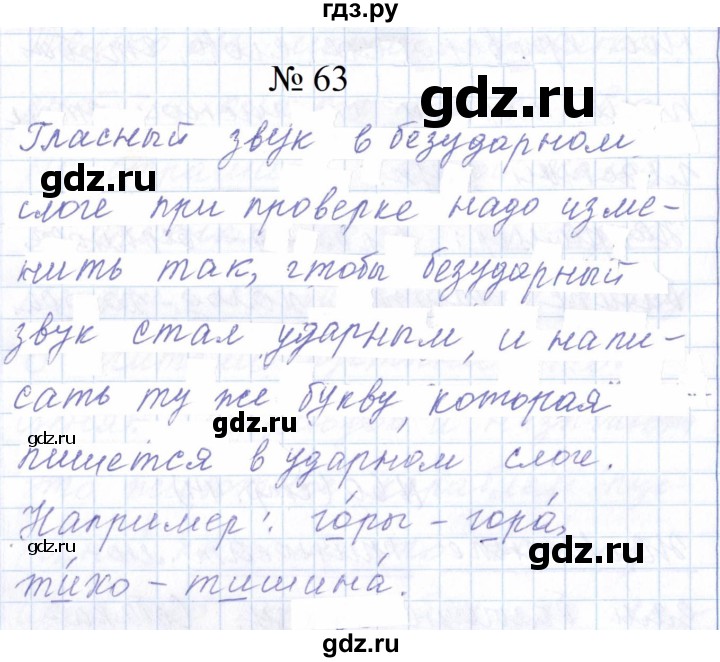 гдз.ру
№ 63
gdz.ru
Гласный звук в безударном
gdz.ru
слоге при проверке надо изме-
gdz.ru
нить так, чтобы безударный
звук стал ударным, и напи-
сать ту же букву, которая
gdz.ru
gdz.ru
пишется в ударном слоге.
Например: го́ры – гора́,
gdz.ru
gdz.ru
ти́хо – тишина́.
gdz.ru